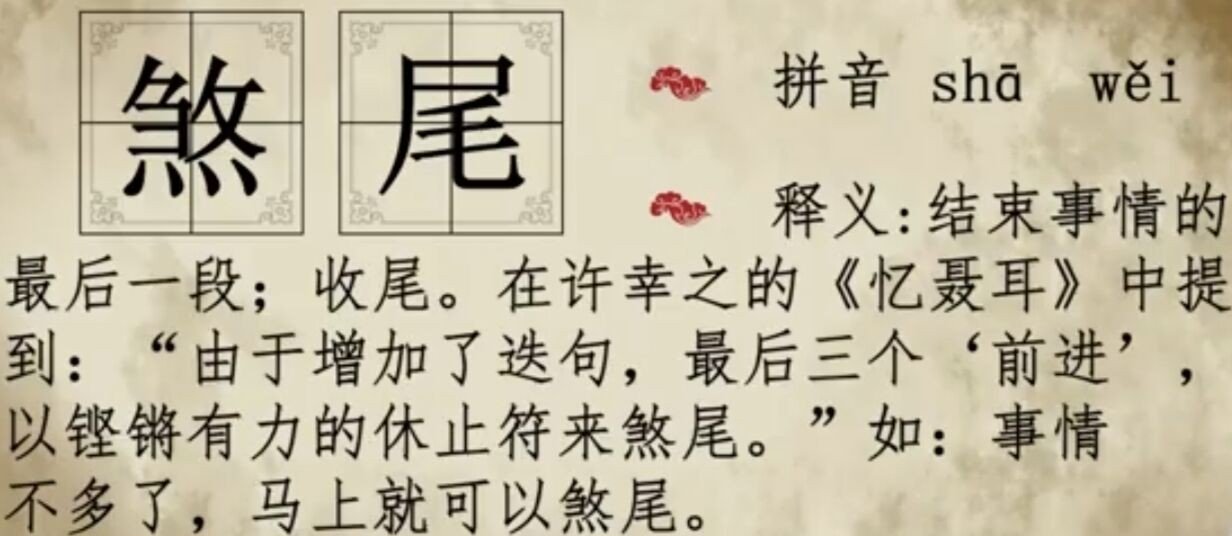 煞尾
拼音 shā wěi
释义:结束事情的
最后一段；收尾。在许幸之的《忆聂耳》中提
到：“由于增加了迭句，最后三个‘前进’，
以铿锵有力的休止符来煞尾。”如：事情
不多了，马上就可以煞尾。